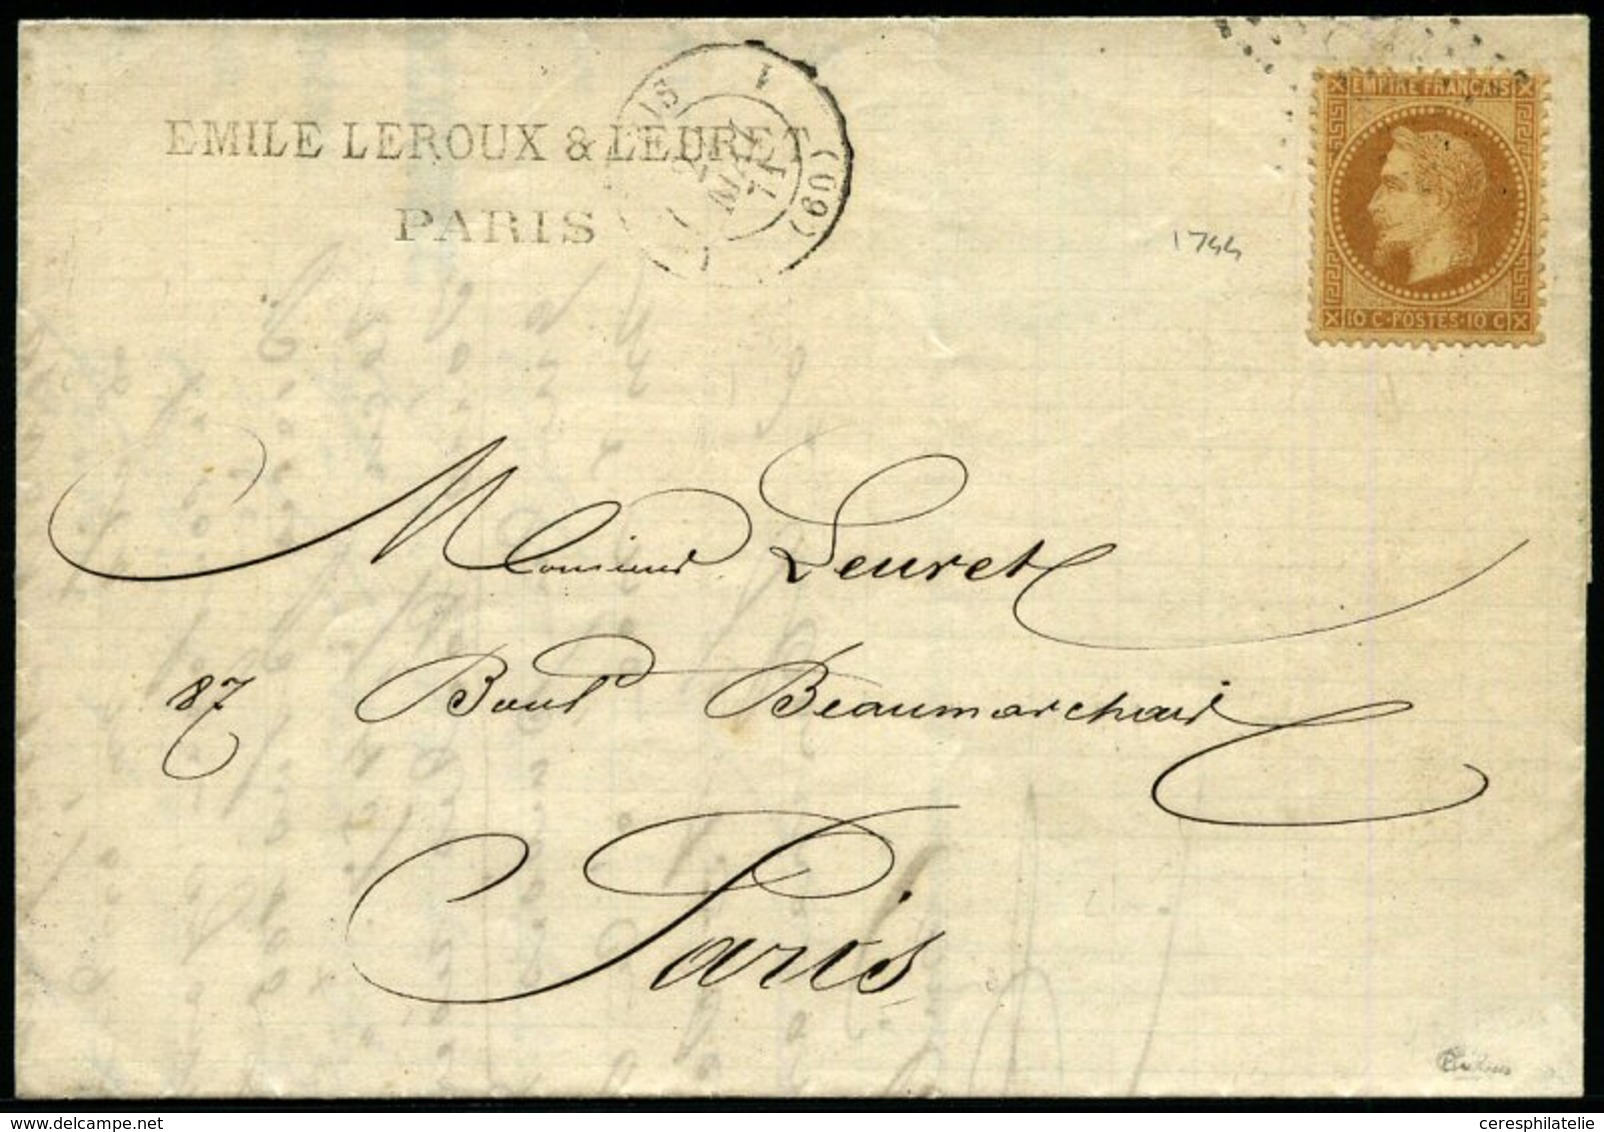 EMILE LEROUX & LEURET
PARIS
PARIS
1
(60)
2
MAI
71
EMPIRE FRANÇAIS
10 C · POSTES · 10 C
1744
Monsieur Leuret
87 Boul'd Beaumarchais
Paris
ceresphilatelie